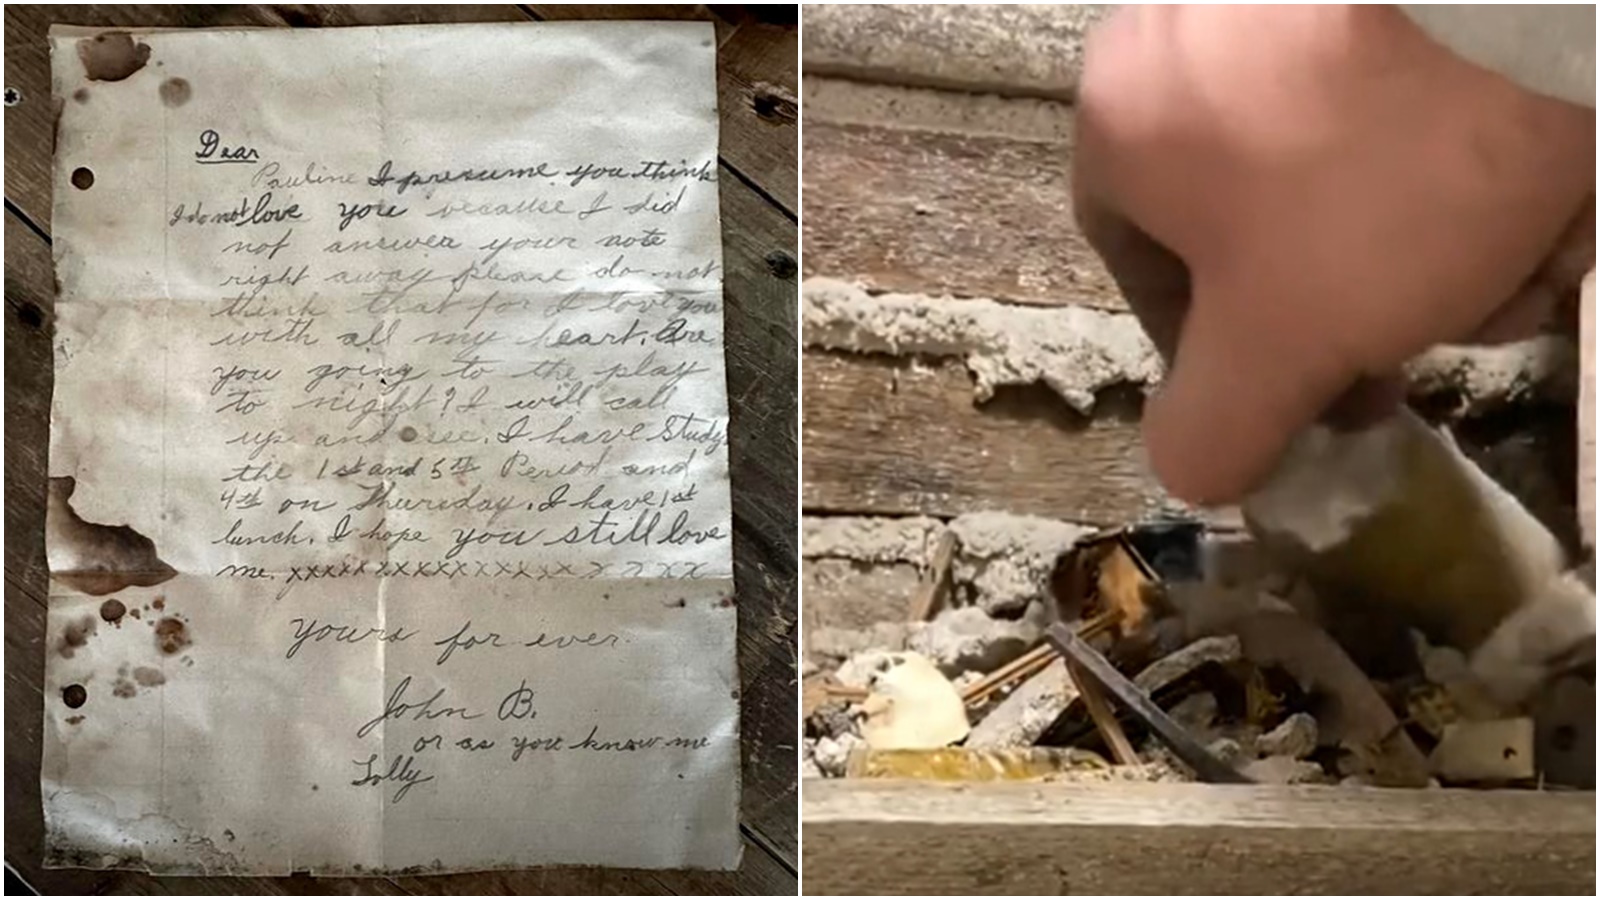 Dear
Pauline I presume you think
I do not love you because I did
not answer your note
right away please do not
think that for I love you
with all my heart. Are
you going to the play
to night? I will call
up and see. I have Study
the 1st and 5th Period and
4th on Thursday. I have 1st
lunch. I hope you still love
me. xxxxxxxxxxxxxxxxxxx
Yours for ever.
John B.
or as you know me
Lolly